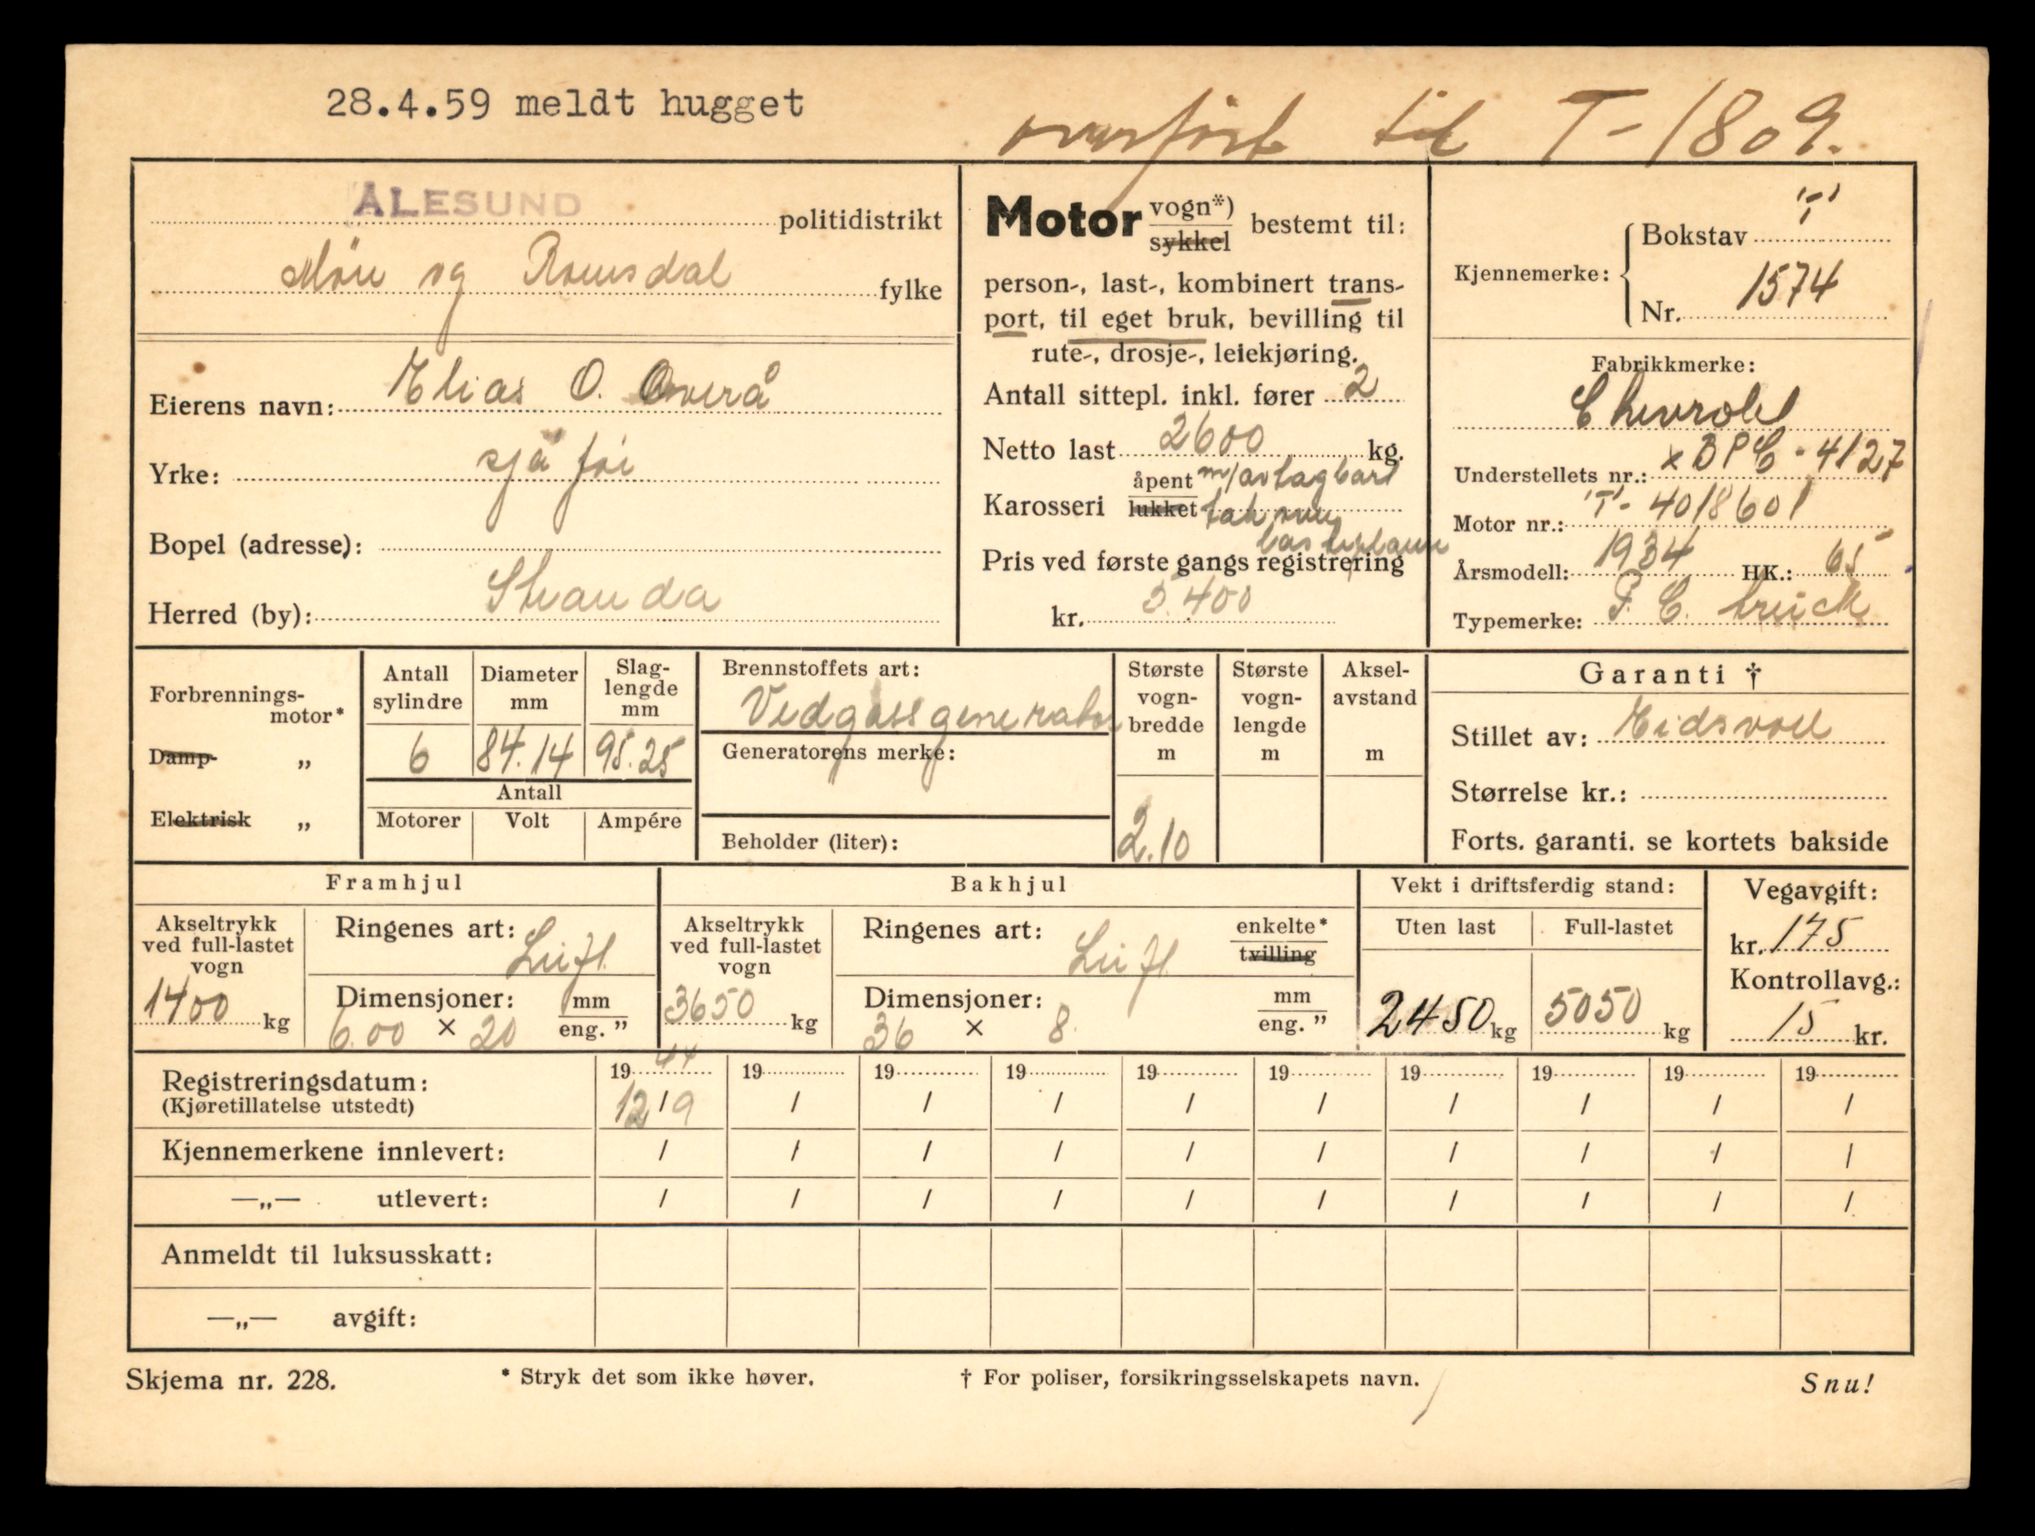 28.4.59 meldt hugget
overført til T-1809.
ÅLESUND politidistrikt
Møre og Romsdal fylke
Eierens navn: Elias O. Overå
Yrke: sjåfør
Bopel (adresse):
Herred (by): Stranda
Motor vogn*) sykkel bestemt til:
person-, last-, kombinert trans-
port, til eget bruk, bevilling til
rute-, drosje-, leiekjøring.
Antall sittepl. inkl. fører 2
Netto last 2600 kg.
Karosseri åpent lukket m/avtagbart
tak over
lasteplanen
Pris ved første gangs registrering
kr. 5400
Kjennemerke: Bokstav "T"
Nr. 1574
Fabrikkmerke:
Chevrolet
Understellets nr.: x BPC - 4127
Motor nr.: "T"- 4018601
Årsmodell: 1934 HK.: 65
Typemerke: P.C. truck
Forbrennings-
motor*
Damp- „
Elektrisk „
Antall sylindre 6
Diameter mm 84.14
Slag-lengde mm 95.25
Antall
Motorer Volt Ampére
Brennstoffets art:
Vedgassgenerator
Generatorens merke:
Beholder (liter):
Største vogn-bredde m 2.10
Største vogn-lengde m
Aksel-avstand m
Garanti †
Stillet av: Eidsvoll
Størrelse kr.:
Forts. garanti. se kortets bakside
Framhjul
Akseltrykk ved full-lastet vogn 1400 kg
Ringenes art: Luft
Dimensjoner: 6.00 × 20 mm eng. "
Bakhjul
Akseltrykk ved full-lastet vogn 3650 kg
Ringenes art: Luft enkelte* tvilling
Dimensjoner: 36 × 8 mm eng. "
Vekt i driftsferdig stand:
Uten last 2450 kg
Full-lastet 5050 kg
Vegavgift:
kr. 175
Kontrollavg.:
15 kr.
Registreringsdatum: 1944 19 19 19 19 19 19 19 19 19
(Kjøretillatelse utstedt) 12/9 / / / / / / / / /
Kjennemerkene innlevert: / / / / / / / / / /
—„— utlevert: / / / / / / / / / /
Anmeldt til luksusskatt:
—„— avgift:
Skjema nr. 228. * Stryk det som ikke høver. † For poliser, forsikringsselskapets navn. Snu!